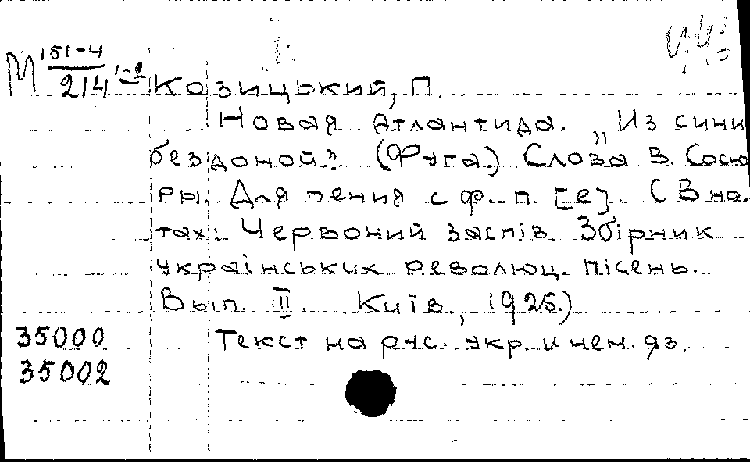 М 151-4
214 1-2
Козицький, П.
Новая Атлантида. „Из сини
бездоной". (Фуга.) Слова В. Сосю
ры. Для пения с ф.-п. [e]. (В но.
тах: Червоний заспів. Збірник
українських революц. пісень.
Вып. II. Київ, 1926)
35000 Текст на рус. укр. и нем. яз.
35002